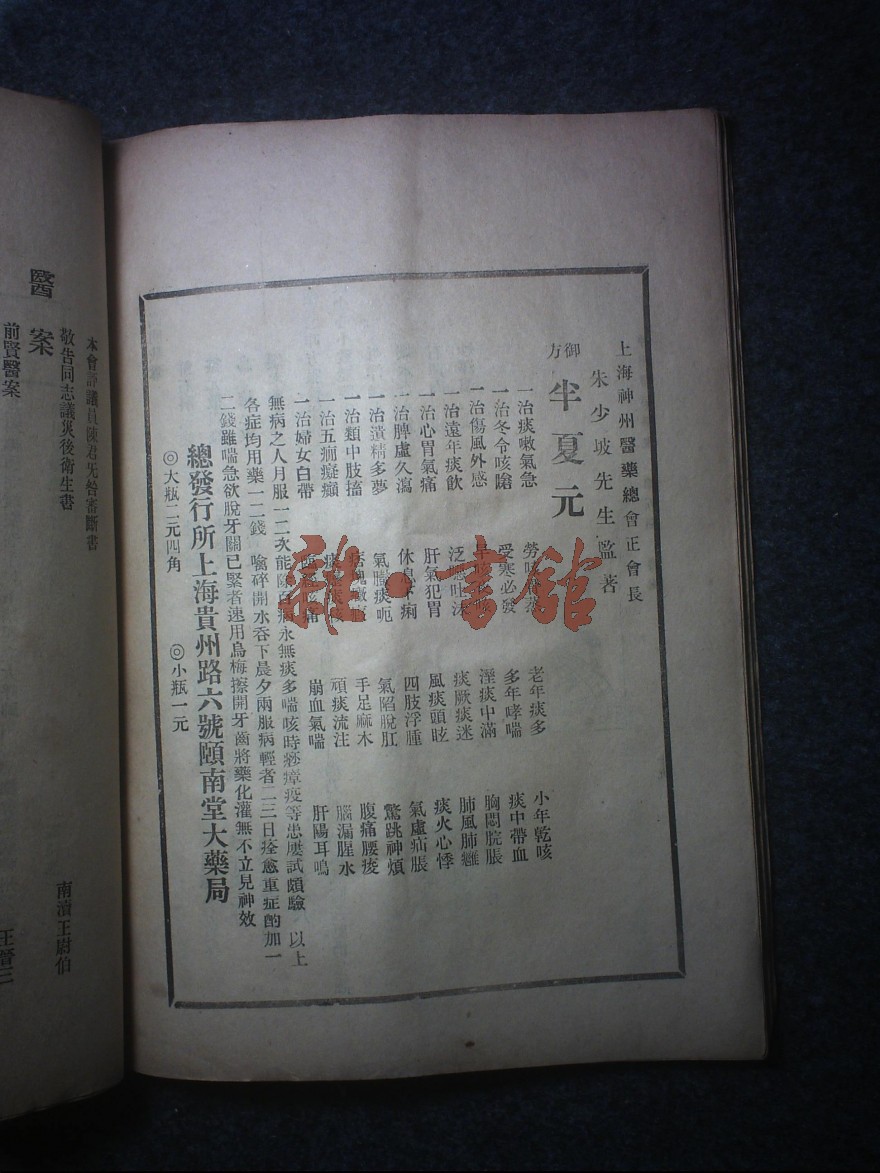 上海神州醫藥總會正會長
朱少坡先生監著
御方 半夏元
一治痰嗽氣急 老年痰多 小年乾咳
一治冬令咳嗆 受寒必發 多年哮喘 痰中帶血
一治傷風外感 溼痰中滿 胸悶脘脹
一治遠年痰飲 痰厥痰迷 肺風肺癰
一治心胃氣痛 肝氣犯胃 風痰頭眩 痰火心悸
一治脾虛久瀉 休息 痢 四肢浮腫 氣虛疝脹
一治遺精多夢 氣臌痰呃 氣陷脫肛 驚跳神煩
一治類中肢搐 手足麻木 腹痛腰痠
一治五痂癡癲 頑痰流注 腦漏腥水
一治婦女白帶 崩血氣喘 肝陽耳鳴
無病之人月服一二次能除百病永無痰多喘咳時痧瘴疫等患屢試頗驗 以上
各症均用藥一二錢 噙碎開水吞下晨夕兩服病輕者二三日痊愈重症酌加一
二錢雖喘急欲脫牙關已緊者速用烏梅擦開牙齒將藥化灌無不立見神效
總發行所上海貴州路六號頤南堂大藥局
◎大瓶二元四角 ◎小瓶一元
雜·書館
本會評議員陳君旡咎審斷書
敬告同志議災後衛生書 南濱王尉伯
醫案
前賢醫案 王晉三